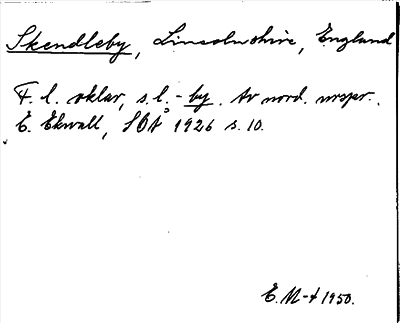 Skendleby, Lincolnshire, England
F. l. oklar, s. l. -by. Av nord. urspr.
E. Ekwall, SOÅ 1926 s. 10.
E. M-t 1950.